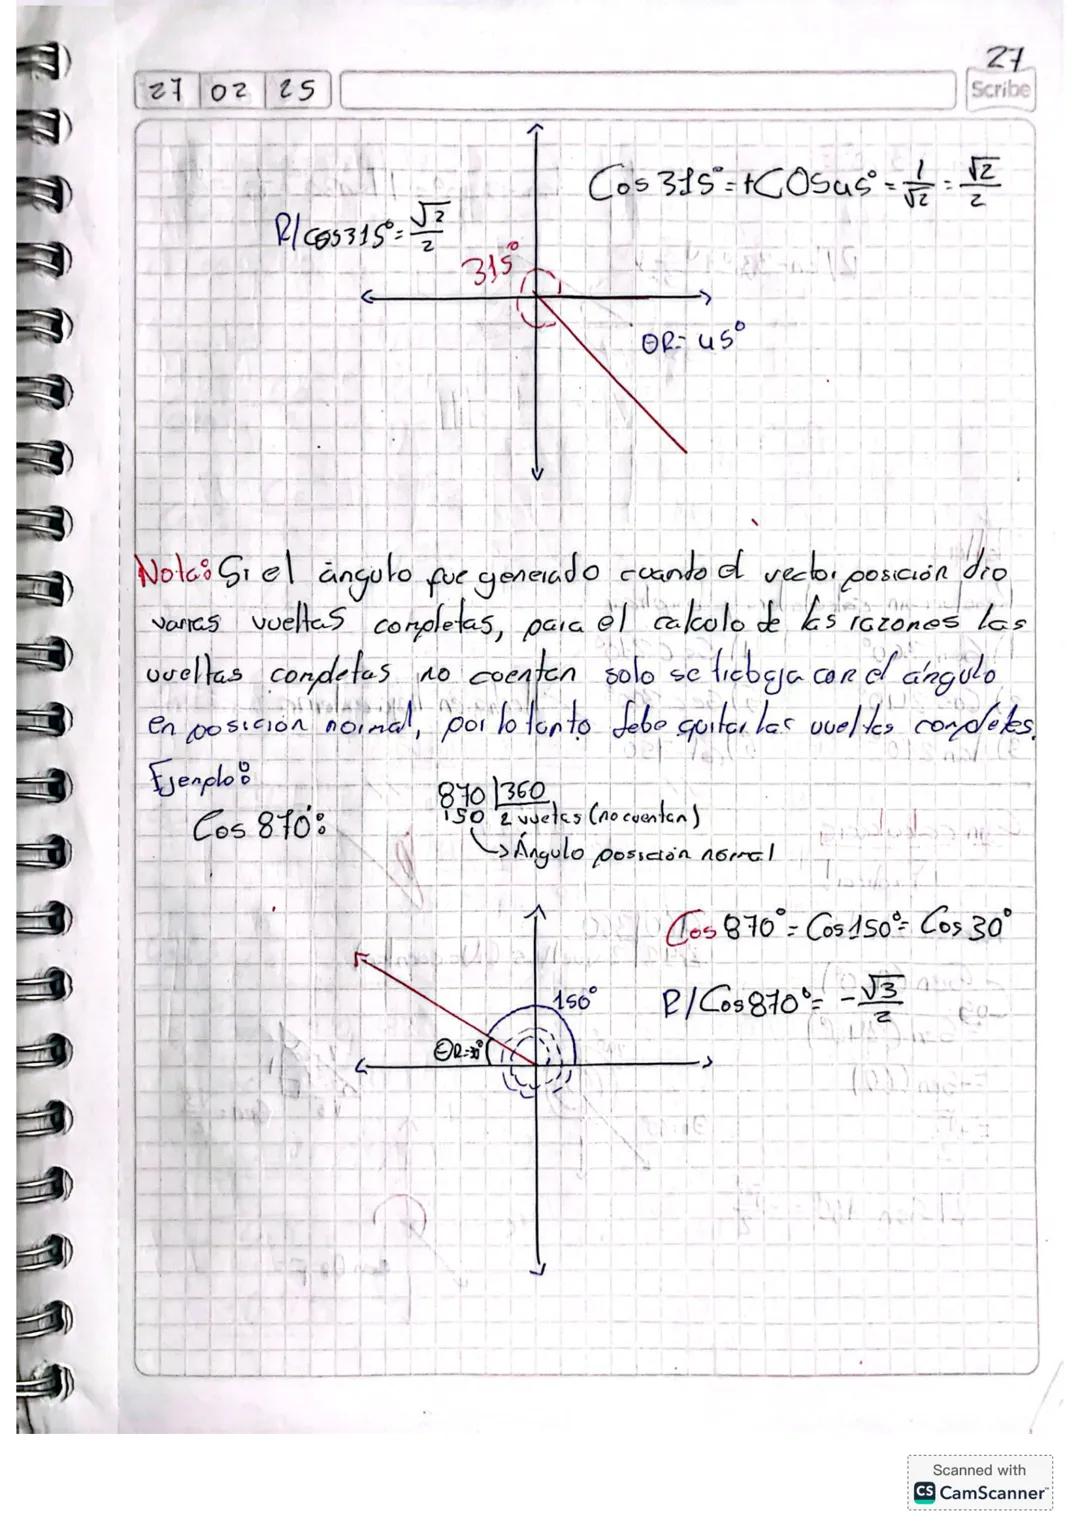 27
27 02 25
Scribe
Cos 315° = +COS 45° = 1/√2 = √2/2
R/ cos 315° = √2/2
315°
ΘR= 45°
Nota: Si el ángulo fue generado cuando el vector posición dio
varias vueltas completas, para el calculo de las razones las
vueltas completas no cuentan solo se trabaja con el ángulo
en posición normal, por lo tanto debo quitar las vueltas completas.
Ejemplo:
Cos 870°:
870 |360
150 2 vueltas (no cuentan)
↳ Ángulo posición normal
Cos 870° = Cos 150° = Cos 30°
150°
R/ Cos 870° = -√3/2
ΘR=30°
Scanned with
CS CamScanner